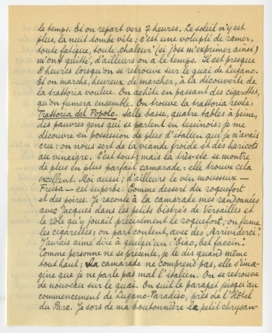 le temps. Et on repart vers 7 heures. Le soleil n'y est
plus, la nuit tombe vite; c'est une volupté de ramer,
toute fatigue, toute chaleur (si j'ose m'exprimer ainsi)
m'ont quitté, d'ailleurs on a le temps. Il est presque
8 heures lorsqu'on se retrouve sur le quai de Lugano.
Et on marche, heureux de marcher, à la découverte de
la trattoria voulue. On achète en passant des cigarettes,
qu'on fumera ensemble. On trouve la trattoria rêvée:
Trattoria del Popolo. Salle basse, quatre tables à peine,
des pauvres gens qui se parlent en tessinois; je me
découvre en possession de plus d'italien que je n'avais
cru; on nous sert de la viande froide et des haricots
au vinaigre. C'est tout; mais la très-sec se montre
de plus en plus parfait camarade; elle trouve cela
excellent. Moi aussi; d'ailleurs le vin mousseux -
Freisa - est superbe. Comme dessert du roquefort
et des poires. Je raconte à la camarade mes randonnées
avec Jacques dans les petits bistros de Versailles et
le rôle qu'y jouait précisément le roquefort; on fume
les cigarettes; on part content, avec des "Arrivederci".
J'aurais aimé dire à quelqu'un: "Ciao, bel faccin".
Comme personne ne se présente, je le dis quand même
tout haut; la camarade ne comprend pas, elle s'ima-
gine que je ne parle pas mal l'italien. On se retrouve
de nouveau sur le quai. On suit le parage jusqu'au
commencement de Lugano-Paradiso, près de l'Hôtel
du Parc. Je sors de ma boutonnière le petit chrysan-